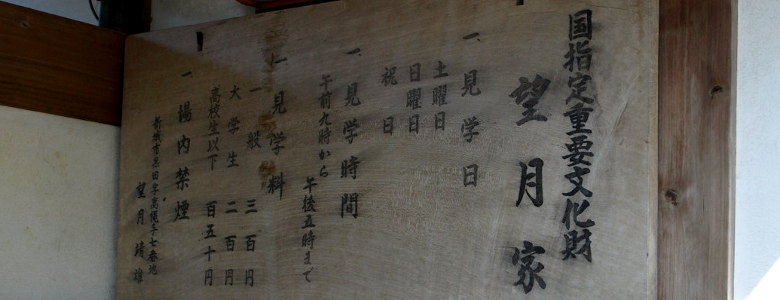 国指定重要文化財
望月家
一、見学日
土曜日
日曜日
祝日
一、見学時間
午前九時から 午後五時まで
一、見学料
一般 三百円
大学生 二百円
高校生以下 百五十円
一、場内禁煙
新城市黒田字高縄手七番地
望月靖雄